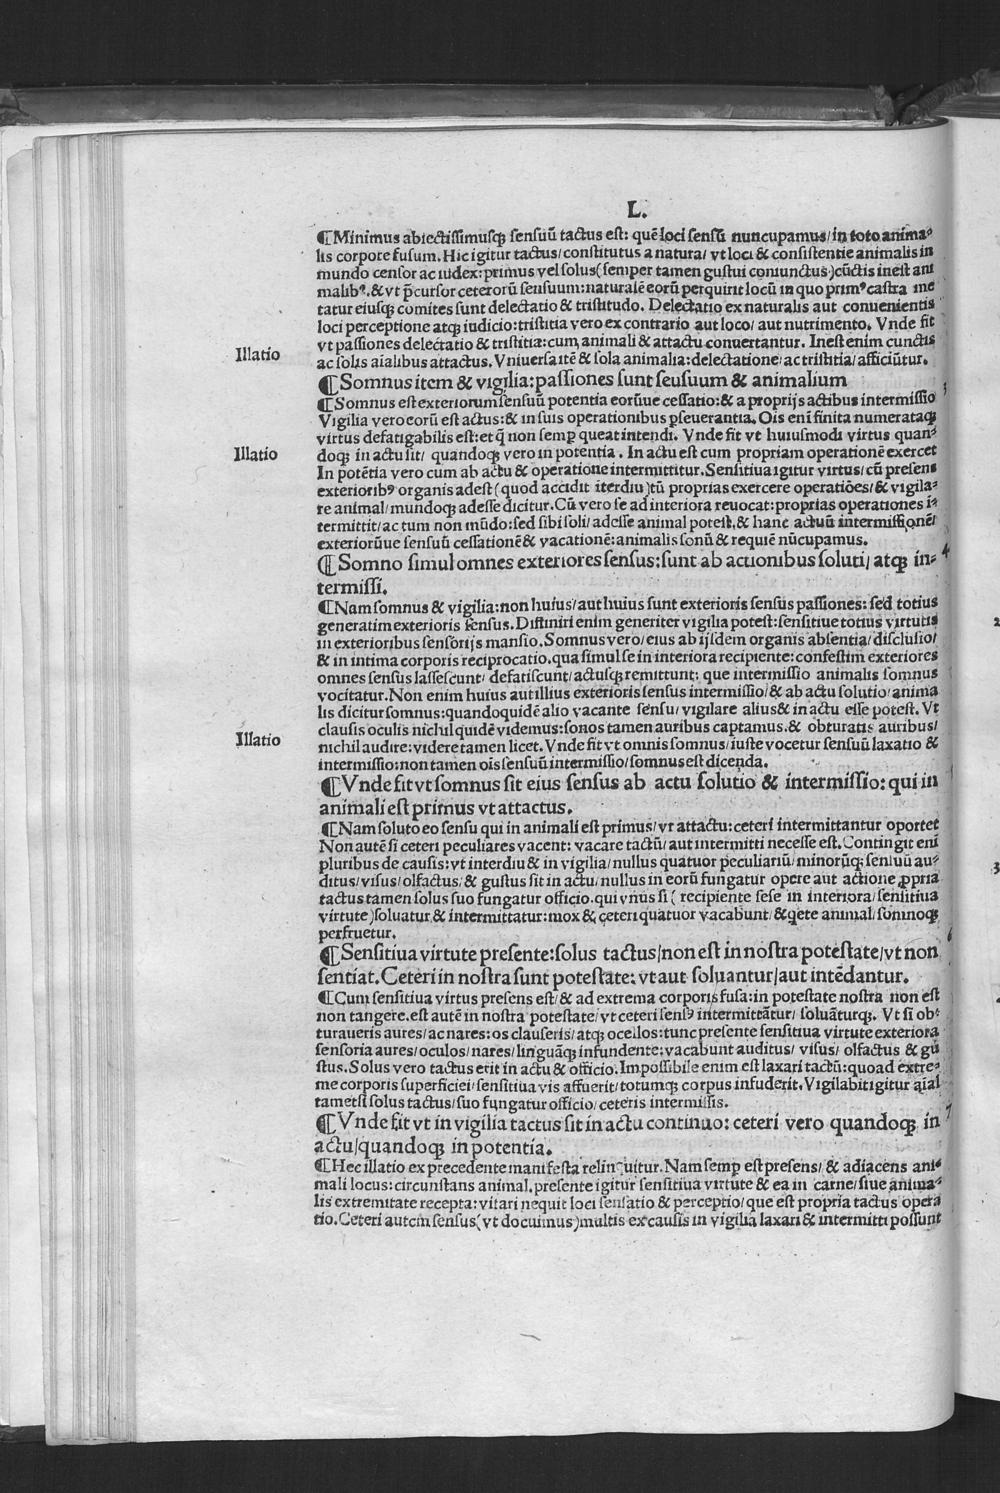 L.
¶Minimus abiectissimusq; sensuū tactus est: quē loci sensū nuncupamus/in toto anima⸗
lis corpore fusum. Hic igitur tactus/constitutus a natura/vt loci & consistentie animalis in
mundo censor ac iudex:primus vel solus(semper tamen gustui coniunctus)cūctis inest ani
malibꝰ.& vt p̄cursor ceterorū sensuum:naturalē eorū perquirit locū in quo primꝰ castra me
tatur eiusq; comites sunt delectatio & tristitudo. Delectatio ex naturalis aut conuenientis
loci perceptione atq; iudicio:tristitia vero ex contrario aut loco/aut nutrimento. Vnde fit
vt passiones delectatio & tristitia:cum animali & attactu conuertantur. Inest enim cunctis
ac solis aīalibus attactus. Vniuersa itē & sola animalia:delectatione/ac tristitia/afficiūtur.
Illatio
¶Somnus item & vigilia:passiones sunt seusuum & animalium
3
¶Somnus est exteriorum sensuū potentia eorūue cessatio:& a proprijs actibus intermissio
Vigilia vero eorū est actus:& in suis operationibus pseuerantia. Ois enī finita numerataq;
virtus defatigabilis est:et q̄ non semp queat intendi. Vnde fit vt huiusmodi virtus quan⸗
Illatio
doq; in actu sit/ quandoq; vero in potentia. In actu est cum propriam operationē exercet
In potētia vero cum ab actu & operatione intermittitur. Sensitiua igitur virtus/cū presens
exterioribꝰ organis adest(quod accidit īterdiu)tū proprias exercere operatiōes/& vigila⸗
re animal/mundoq; adesse dicitur. Cū vero se ad interiora reuocat:proprias operationes ī⸗
termittit/ac tum non mūdo:sed sibi soli/adesse animal potest.& hanc actuū intermissionē/
exteriorūue sensuū cessationē & vacationē:animalis sonū & requiē nūcupamus.
¶Somno simul omnes exteriores sensus:sunt ab actionibus soluti/ atq; in⸗
4
termissi.
¶Nam somnus & vigilia:non huius/aut huius sunt exterioris sensus passiones: sed totius
generatim exterioris sensus. Diffiniri enim generiter vigilia potest:sensitiue totius virtutis
in exterioribus sensorijs mansio. Somnus vero/eius ab ijsdem organis absentia/disclusio/
& in intima corporis reciprocatio.qua simul se in interiora recipiente:confestim exteriores
omnes sensus lassescunt/ defatiscunt/actusq; remittunt: que intermissio animalis somnus
vocitatur. Non enim huius aut illius exterioris sensus intermissio/& ab actu solutio/anima
lis dicitur somnus:quandoquidē alio vacante sensu/ vigilare alius & in actu esse potest. Vt
clausis oculis nichil quidē videmus:sonos tamen auribus captamus.& obturatis auribus/
Illatio
nichil audire:videre tamen licet. Vnde fit vt omnis somnus/iuste vocetur sensuū laxatio &
intermissio:non tamen ois sensuū intermissio/somnus est dicenda.
¶Vnde fit vt somnus sit eius sensus ab actu solutio & intermissio: qui in
animali est primus vt attactus.
¶Nam soluto eo sensu qui in animali est primus/vt attactu:ceteri intermittantur oportet
Non autē si ceteri peculiares vacent: vacare tactū/aut intermitti necesse est. Contingit enī
pluribus de causis:vt interdiu & in vigilia/nullus quatuor peculiariū/minorūq; sensuū au⸗
ditus/visus/olfactus/& gustus sit in actu/nullus in eorū fungatur opere aut actione ꝓpria
tactus tamen solus suo fungatur officio.qui vnus si ( recipiente sese in interiora/sensitiua
virtute)soluatur & intermittatur:mox & ceteri quatuor vacabunt/& q̇ete animal/somnoq;
perfruetur.
¶Sensitiua virtute presente:solus tactus/non est in nostra potestate/vt non
6
sentiat. Ceteri in nostra sunt potestate: vt aut soluantur/aut intēdantur.
¶Cum sensitiua virtus presens est/& ad extrema corporis fusa:in potestate nostra non est
non tangere.est autē in nostra potestate/vt ceteri sensꝰ intermittātur/soluāturq;. Vt si ob⸗
turaueris aures/ac nares: os clauseris/ atq; ocellos:tunc presente sensitiua virtute exteriora
sensoria aures/oculos/nares/linguāq; infundente:vacabunt auditus/ visus/ olfactus & gu
stus. Solus vero tactus erit in actu & officio. Impossibile enim est laxari tactū:quoad extre⸗
me corporis superficiei/sensitiua vis affuerit/totumq; corpus infuderit. Vigilabit igitur aīal
tametsi solus tactus/suo fungatur officio/ceteris intermissis.
¶Vnde fit vt in vigilia tactus sit in actu continuo: ceteri vero quandoq; in
7
actu/quandoq; in potentia.
¶Hec illatio ex precedente manifesta relinquitur. Nam semp est presens/ & adiacens ani⸗
mali locus:circunstans animal.presente igitur sensitiua virtute & ea in carne/siue anima⸗
lis extremitate recepta: vitari nequit loci sensatio & perceptio/que est propria tactus opera
tio. Ceteri autem sensus(vt docuimus)multis ex causis in vigilia laxari & intermitti possunt